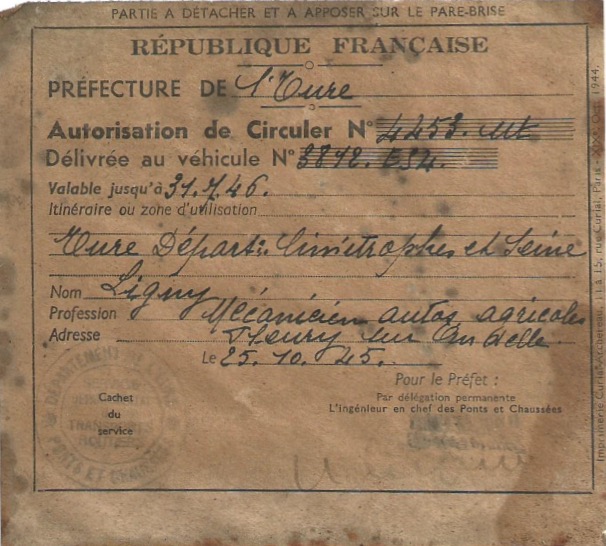 PARTIE A DÉTACHER ET A APPOSER SUR LE PARE-BRISE
RÉPUBLIQUE FRANÇAISE
PRÉFECTURE DE l'Eure
Autorisation de Circuler N° 4453. 
Délivrée au véhicule N° 3812.
Valable jusqu'à 31.7.46.
Itinéraire ou zone d'utilisation
Eure Départs limitrophes et Seine
Nom Ligny
Profession Mécanicien autos agricoles
Adresse Fleury sur Andelle
Le 25.10.45.
Pour le Préfet :
Par délégation permanente
L'ingénieur en chef des Ponts et Chaussées
Cachet
du
service
DÉPARTEMENT
PONTS ET
Imprimerie Curial-Archereau, 11 à 15, rue Curial, Paris 1944.